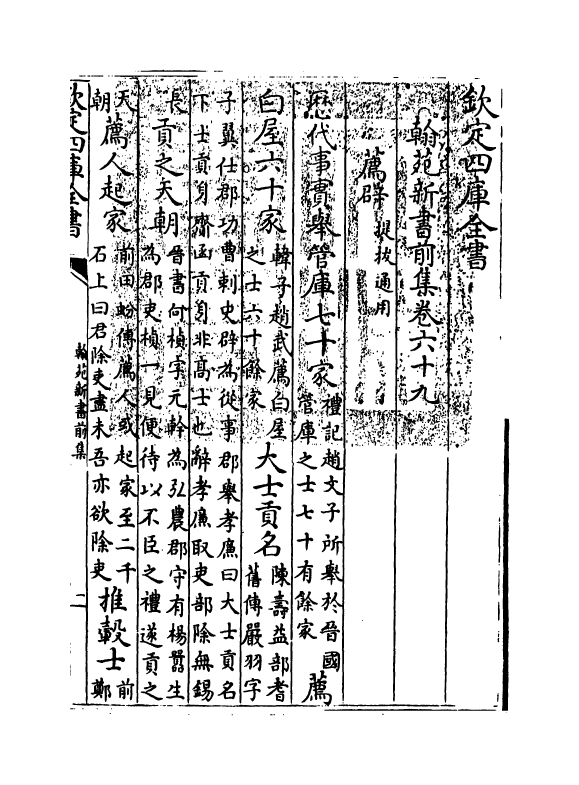 欽定四庫全書
翰苑新書前集卷六十九
薦辟 提拔通用
歷代事實舉管庫七十家 禮記趙文子所舉於晉國
管庫之士七十有餘家 薦
白屋六十家 韓子趙武薦白屋
之士六十餘家 大士貢名 陳壽益部耆
舊傳嚴羽字
子翼仕郡功曹刺史辟為從事郡舉孝廉曰大士貢名
下士貢身齎函貢身非高士也辭孝廉取吏部除無錫
長 貢之天朝 晉書何楨字元幹為弘農郡守有楊囂生
為郡吏楨一見便待以不臣之禮遂貢之
天
朝 薦人起家 前田蚡傳薦人或起家至二千
石上曰君除吏盡未吾亦欲除吏 推轂士 前
鄭
欽定四庫全書
翰苑新書前集